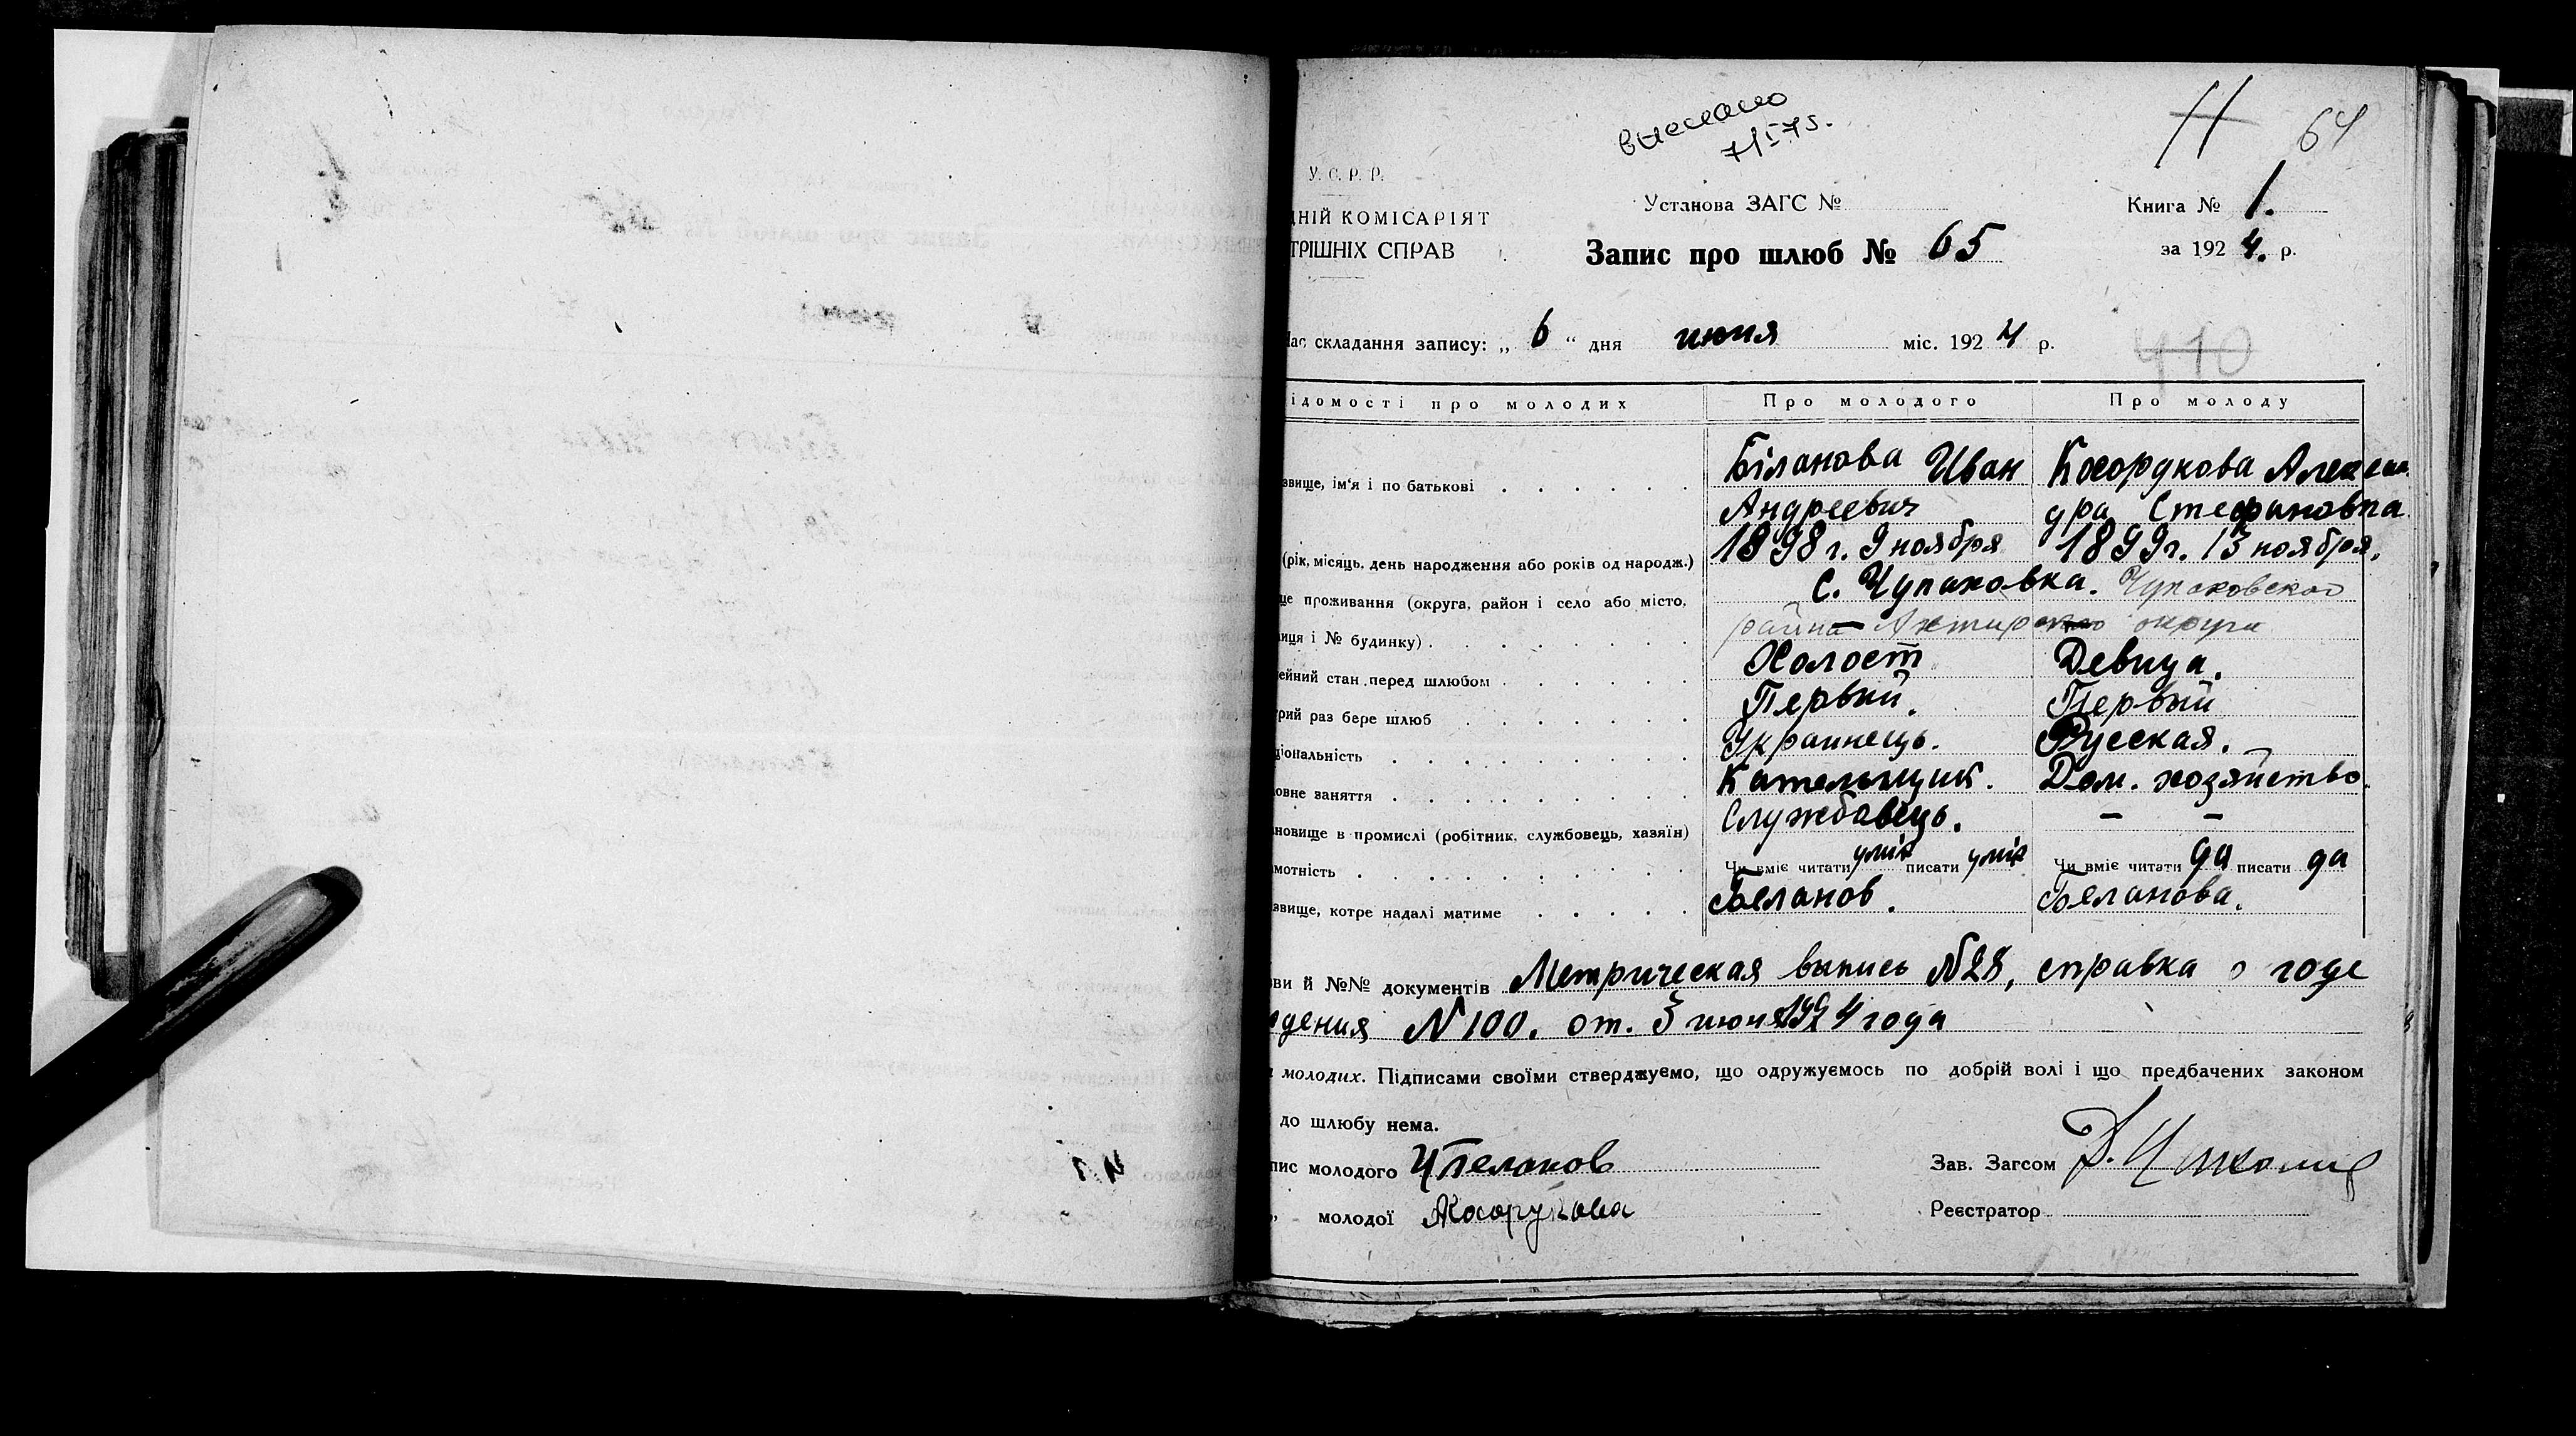 вислано
7/I 75.
64
У. С. Р. Р.
Установа ЗАГС №
Книга № 1.
ДНІЙ КОМІСАРІЯТ
ТРІШНІХ СПРАВ
Запис про шлюб № 65
за 1924. р.
Час складання запису: „ 6 “ дня июня міс. 1924 р.
410
ідомості про молодих Про молодого Про молоду
звище, ім'я і по батькові Біланова Иван Косорукова Алексан
Андреевич дра Стефановна
(рік, місяць, день народження або років од народж.) 1898 г. 9 ноября 1899 г. 13 ноября.
це проживання (округа, район і село або місто, с. Чупаховка. Чупаховского
лиця і № будинку) района округи
ейний стан перед шлюбом Холост Девица.
рий раз бере шлюб Первый. Первый
ціональність Украинець. Русская.
овне заняття Кательщик. Дом. хозяйство.
новище в промислі (робітник, службовець, хазяїн) Службовець. — —
мотність Чи вміє читати уміє писати уміє Чи вміє читати да писати да
звище, котре надалі матиме Беланов. Беланова.
зви й №№ документів Метрическая выпись №28, справка о годе
дения №100. от. 3 июня 1924 года
молодих. Підписами своїми стверджуємо, що одружуємось по добрій волі і що предбачених законом
до шлюбу нема.
пис молодого И Беланов Зав. Загсом
„ молодої АКосорукова Реєстратор